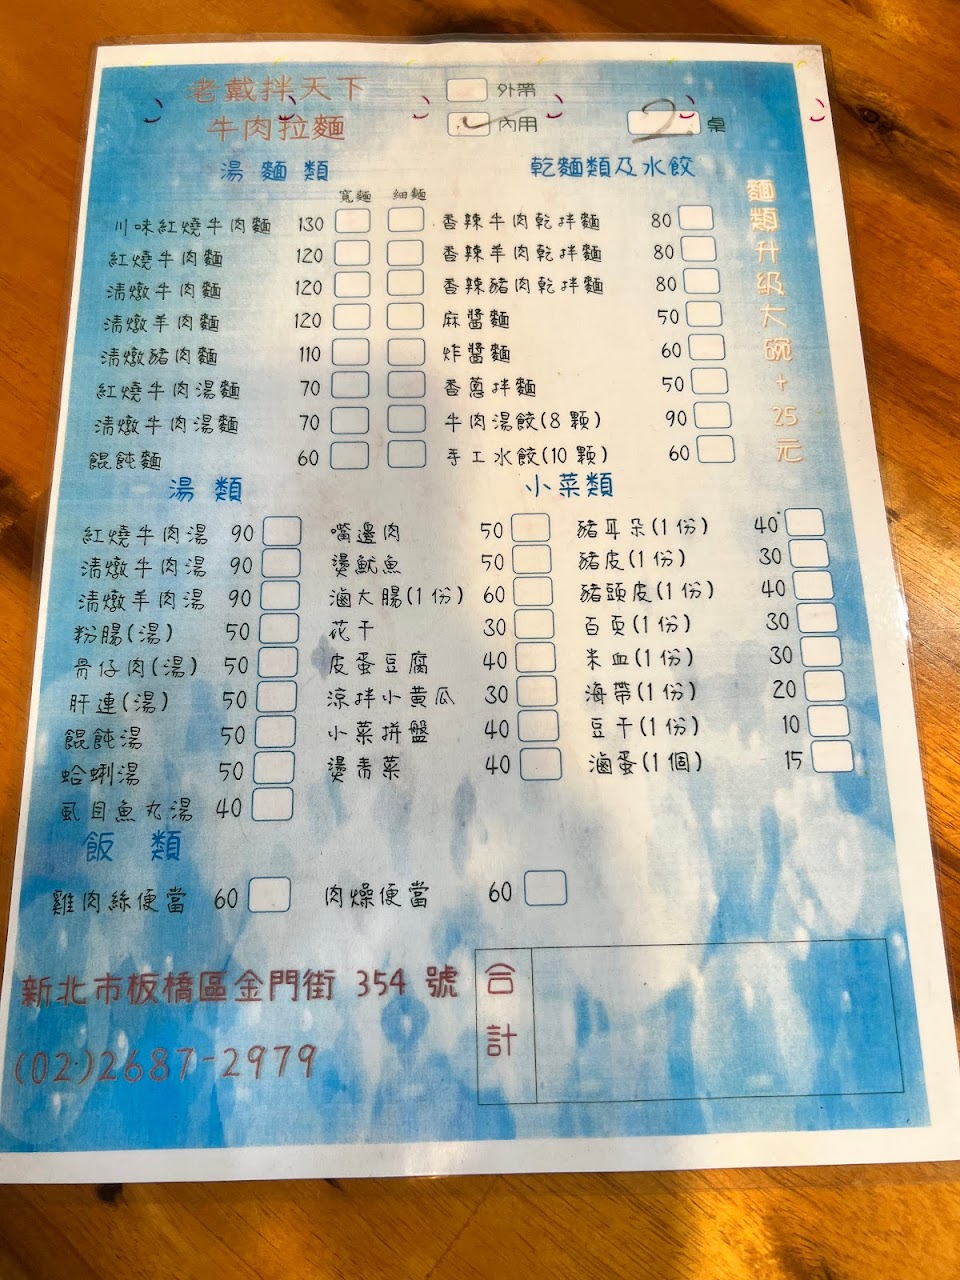 老戴拌天下
牛肉拉麵
外帶
內用 2 桌
湯麵類
寬麵 細麵
川味紅燒牛肉麵 130
紅燒牛肉麵 120
清燉牛肉麵 120
清燉羊肉麵 120
清燉豬肉麵 110
紅燒牛肉湯麵 70
清燉牛肉湯麵 70
餛飩麵 60
乾麵類及水餃
香辣牛肉乾拌麵 80
香辣羊肉乾拌麵 80
香辣豬肉乾拌麵 80
麻醬麵 50
炸醬麵 60
香蔥拌麵 50
牛肉湯餃(8顆) 90
手工水餃(10顆) 60
麵類升級大碗+25元
湯類
紅燒牛肉湯 90
清燉牛肉湯 90
清燉羊肉湯 90
粉腸(湯) 50
骨仔肉(湯) 50
肝連(湯) 50
餛飩湯 50
蛤蜊湯 50
虱目魚丸湯 40
小菜類
嘴邊肉 50
燙魷魚 50
滷大腸(1份) 60
花干 30
皮蛋豆腐 40
涼拌小黃瓜 30
小菜拼盤 40
燙青菜 40
豬耳朵(1份) 40
豬皮(1份) 30
豬頭皮(1份) 40
百頁(1份) 30
米血(1份) 30
海帶(1份) 20
豆干(1份) 10
滷蛋(1個) 15
飯類
雞肉絲便當 60
肉燥便當 60
新北市板橋區金門街 354 號
(02)2687-2979
合計